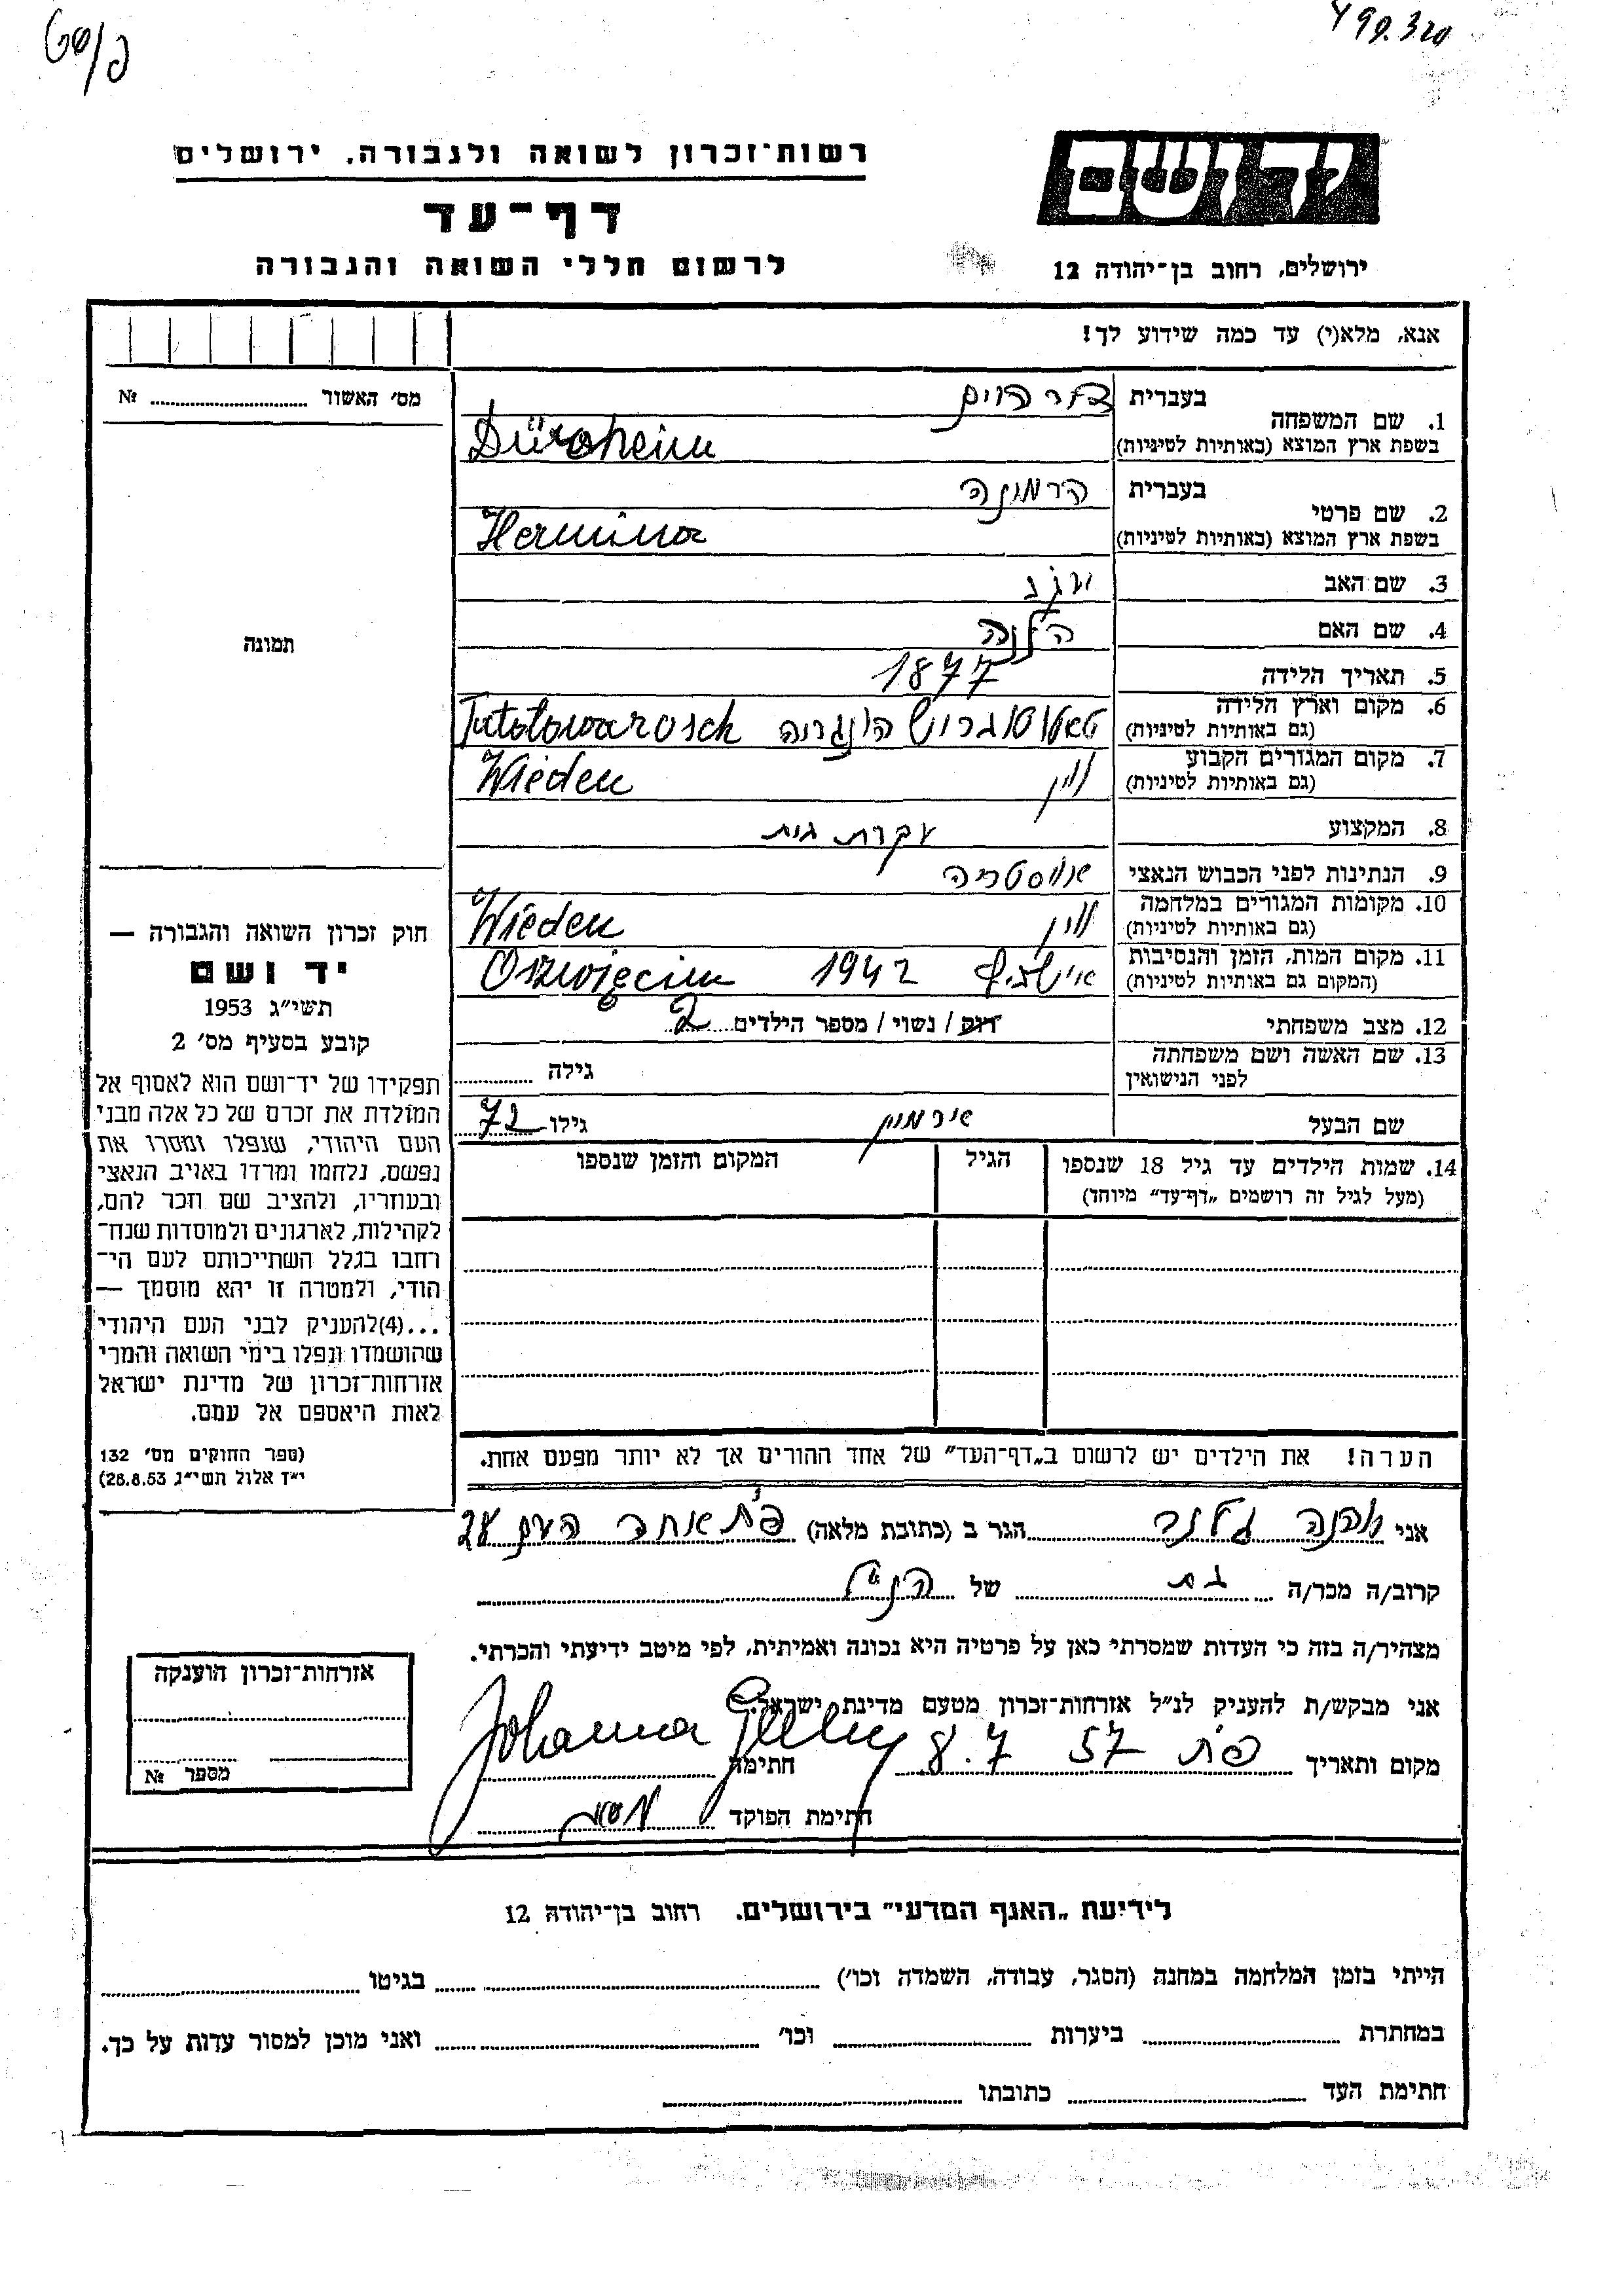 499.320
יד ושם
ירושלים, רחוב בן־יהודה 12
רשות־זכרון לשואה ולגבורה, ירושלים
דף־עד
לרשום חללי השואה והגבורה
אנא, מלא(י) עד כמה שידוע לך!
1. שם המשפחה בעברית
בשפת ארץ המוצא (באותיות לטיניות) Düroheim
2. שם פרטי בעברית הרמינה
בשפת ארץ המוצא (באותיות לטיניות) Hermina
3. שם האב
4. שם האם הלנה
5. תאריך הלידה 1877
6. מקום וארץ הלידה הונגריה Tatotowarosch
(גם באותיות לטיניות)
7. מקום המגורים הקבוע וין Wieden
(גם באותיות לטיניות)
8. המקצוע עקרת בית
9. הנתינות לפני הכבוש הנאצי אוסטריה
10. מקומות המגורים במלחמה וין Wieden
(גם באותיות לטיניות)
11. מקום המות, הזמן והנסיבות 1942 Oswięcim
(המקום גם באותיות לטיניות)
12. מצב משפחתי רוק / נשוי / מספר הילדים 2
13. שם האשה ושם משפחתה
לפני הנישואין גילה
שם הבעל גילו 72
14. שמות הילדים עד גיל 18 שנספו הגיל המקום והזמן שנספו
(מעל לגיל זה רושמים „דף־עד״ מיוחד)
הערה! את הילדים יש לרשום ב„דף־העד״ של אחד ההורים אך לא יותר מפעם אחת.
מס׳ האשור №
תמונה
חוק זכרון השואה והגבורה —
יד ושם
תשי״ג 1953
קובע בסעיף מס׳ 2
תפקידו של יד־ושם הוא לאסוף אל
המולדת את זכרם של כל אלה מבני
העם היהודי, שנפלו ומסרו את
נפשם, נלחמו ומרדו באויב הנאצי
ובעוזריו, ולהציב שם וזכר להם,
לקהילות, לארגונים ולמוסדות שנח־
רחבו בגלל השתייכותם לעם הי־
הודי, ולמטרה זו יהא מוסמך —
...(4)להעניק לבני העם היהודי
שהושמדו ונפלו בימי השואה והמרי
אזרחות־זכרון של מדינת ישראל
לאות היאספם אל עמם.
(ספר החוקים מס׳ 132
י״ד אלול תשי״ג 28.8.53)
אני הגר ב (כתובת מלאה)
קרוב/ה מכר/ה בת של הנ״ל
מצהיר/ה בזה כי העדות שמסרתי כאן על פרטיה היא נכונה ואמיתית, לפי מיטב ידיעתי והכרתי.
אני מבקש/ת להעניק לנ״ל אזרחות־זכרון מטעם מדינת ישראל.
מקום ותאריך 8.7 57 חתימה Johanna
חתימת הפוקד
אזרחות־זכרון הוענקה
מספר №
לידיעת „האגף המדעי״ בירושלים. רחוב בן־יהודה 12
הייתי בזמן המלחמה במחנה (הסגר, עבודה, השמדה וכו׳) בגיטו
במחתרת ביערות וכו׳ ואני מוכן למסור עדות על כך.
חתימת העד כתובתו